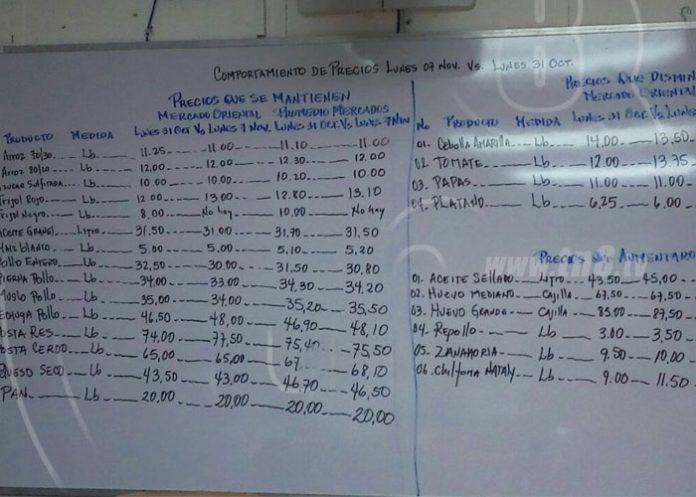 COMPORTAMIENTO DE PRECIOS LUNES 07 NOV. VS. LUNES 31 OCT.
PRECIOS QUE SE MANTIENEN
MERCADO ORIENTAL PROMEDIO MERCADOS
PRODUCTO MEDIDA LUNES 31 OCT VS LUNES 7 NOV. LUNES 31 OCT. VS LUNES 7 NOV
Arroz 70/30 Lb 11.25 11.00 11.10 11.00
Arroz 80/20 Lb 12.00 12.00 12.30 12.00
Lb 10.00 10.00 10.20 10.00
Frijol Rojo Lb 12.00 13.00 12.80 13.10
Frijol Negro Lb 8,00 No hay 10.00 No hay
ACEITE GRANEL LITRO 31,50 31.00 31.70 31,50
MAIZ BLANCO Lb 5.00 5.00 5,10 5,20
POLLO ENTERO Lb 32,50 30.00 31,50 30,80
PIERNA POLLO Lb 34,00 33.00 34,30 34,20
MUSLO POLLO Lb 35,00 34,00 35,20 35,50
POLLO Lb 46,50 48,00 46,90 48,10
POSTA RES Lb 74,00 77,50 75,40 75,50
POSTA CERDO Lb 65,00 65,00 67, 68,10
QUESO SECO Lb 43,50 43,00 46.70 46,50
PAN Lb 20,00 20,00 20,00 20,00
PRECIOS QUE DISMIN
MERCADO ORIENTAL
No PRODUCTO MEDIDA LUNES 31 OCT VS LUNES
01. Cebolla AMARILLA Lb 14.00 13,50
02. TOMATE Lb 12.00 13.75
03. PAPAS Lb 11.00 11.00
04. PLATANO Lb 6,25 6.00
PRECIOS AUMENTARO
01. ACEITE SELLADO LITRO 43,50 45,00
02. HUEVO MEDIANO Cajilla 67,50 67,50
03. HUEVO GRANDE Cajilla 85.00 87,50
04. Repollo Lb 3.00 3,50
05. ZANAHORIA Lb 9.50 10,00
06. Chiltoma NATALY Lb 9.00 11.50
www.tn8.tv